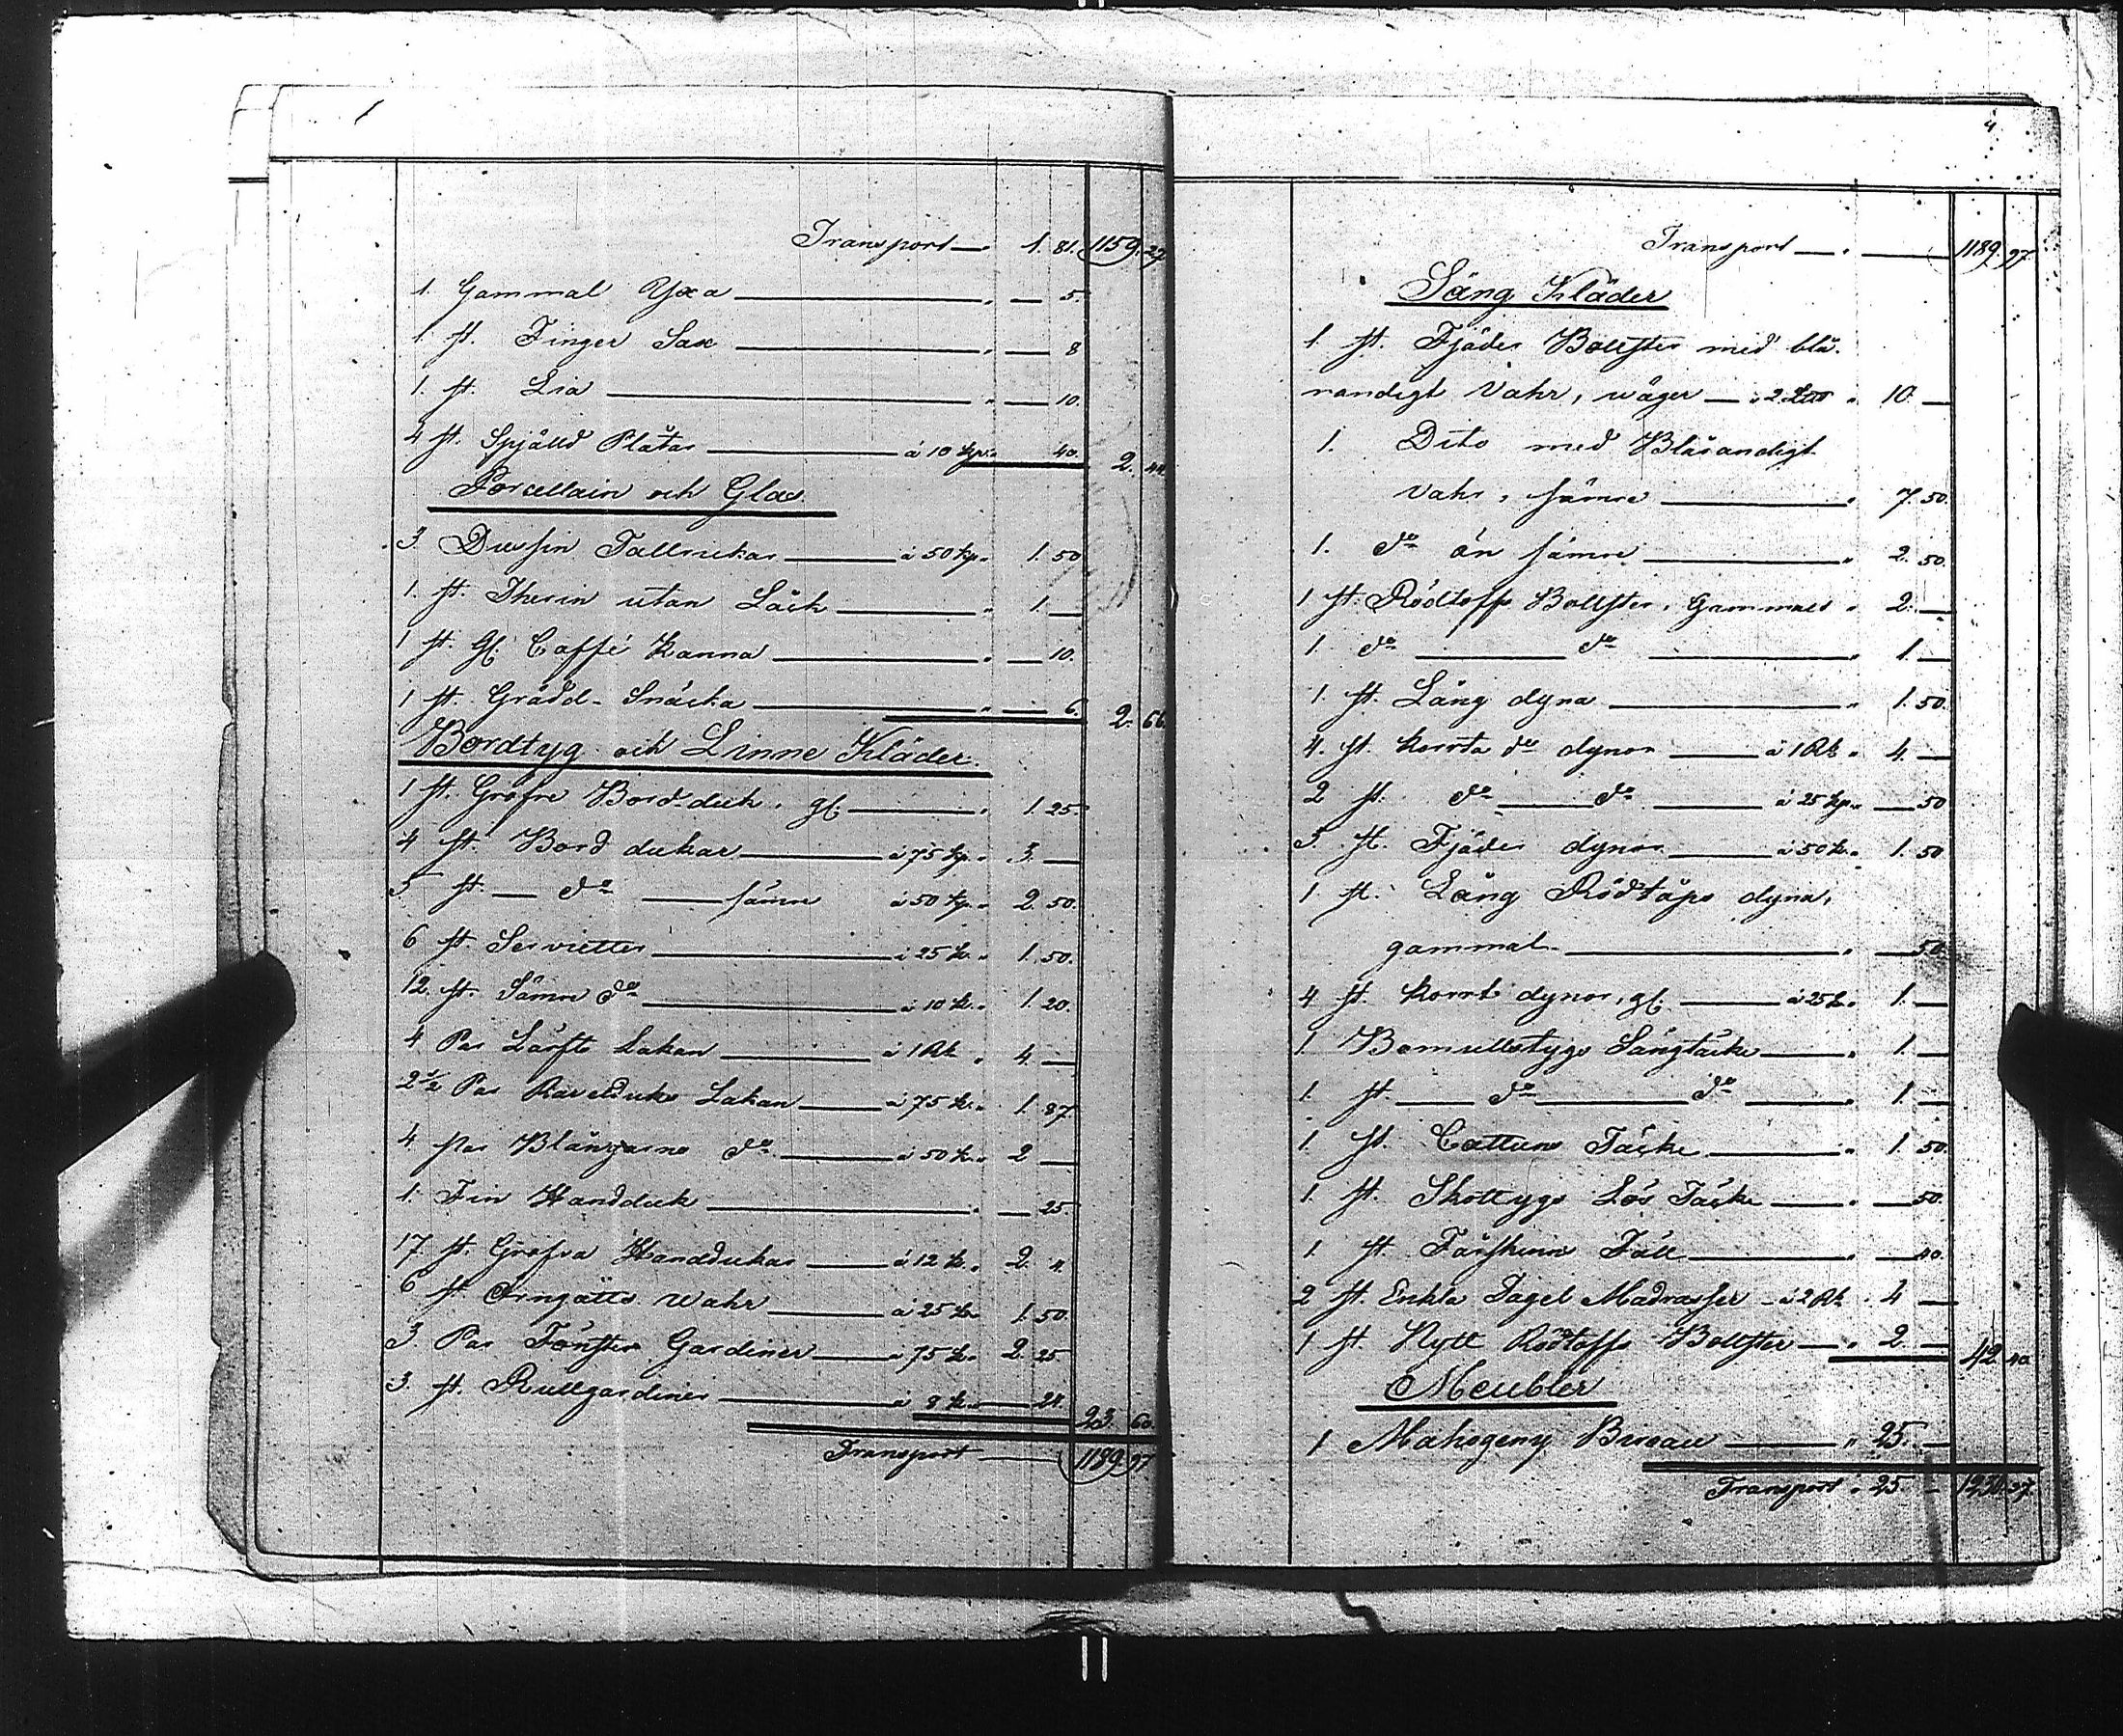 Transport — " 1. 81. 1159. 27
1. Gammal Yxa — " — 5.
1 st. Finger Sax — " — 8
1. st. Lia — " — 10.
4 st. Spjälld Plåtar — á 10 kp. " 40. 2. 44
Porcellain och Glas.
3 Dussin Tallrickar — á 50 kp. " 1. 50
1. st. Therin utan Låck — " 1. —
1 st. Gl. Caffé Kanna — " — 10.
1 st. Grädd-Snäcka — " — 6. 2. 66
Bordtyg och Linne Kläder.
1 st. Gröfre Bord duk, gl. — " 1. 25.
4 st. Bord dukar — á 75 kp. " 3. —
5 st — do — sämre á 50 kp. " 2. 50.
6 st Servietter — á 25 k. " 1. 50.
12. st. Sämre do — á 10 k. " 1. 20.
4 Par Lärfts Lakan — á 1 Rd. " 4. —
2 1/2 Par Ravelduks Lakan — á 75 k. " 1. 87
4 par Blångarns do — á 50 k. " 2 —
1. Fin Handduk — " — 25
17. st. Gröfva Handdukar — á 12 k. " 2. 4.
6 st Örngåtts wahr — á 25 k. 1. 50.
3. Par Fönster Gardiner — á 75 k. " 2. 25
3. st. Rullgardiner — á 8 k. — 24. 23. 60
Transport — 1189. 97
4
Transport — " — 1189. 97
Säng Kläder
1 st. Fjäder Bollster med blå.
randigt Vahr, wäger — " 2 " 10. —
1. Dito med Blårandigt
Vahr, sämre — " 7. 50.
1. do än sämre — " 2. 50.
1 st. Rödtoffs Bollster, Gammalt " 2. —
1 do — do — " 1. —
1 st. Lång dyna — " 1. 50.
4. st. korrta do dynor — á 1 Rd. " 4. —
2 st. do — do — á 25 kp. " — 50
3. st. Fjäder dynor — á 50 k. " 1. 50
1 st. Lång Rödtåps dyna,
gammal — " — 50.
4 st. korrt dynor, gl. — á 25 k. " 1. —
1. Bomullstygs Sängtäcke — " 1. —
1. st. — do — do — " 1. —
1. st. Cattuns Täcke — " 1. 50.
1. st. Skottygs Lös Täcke — " — 50.
1. st. Fårskinns Fäll — " — 40.
2 st. Enkla Tagel Madrasser — á 2 Rd. " 4 —
1 st. Nytt Rödtoffs Bollster — " 2. — 42. 40
Meubler
1 Mahogeny Bureau — " 25. —
Transport " 25 —